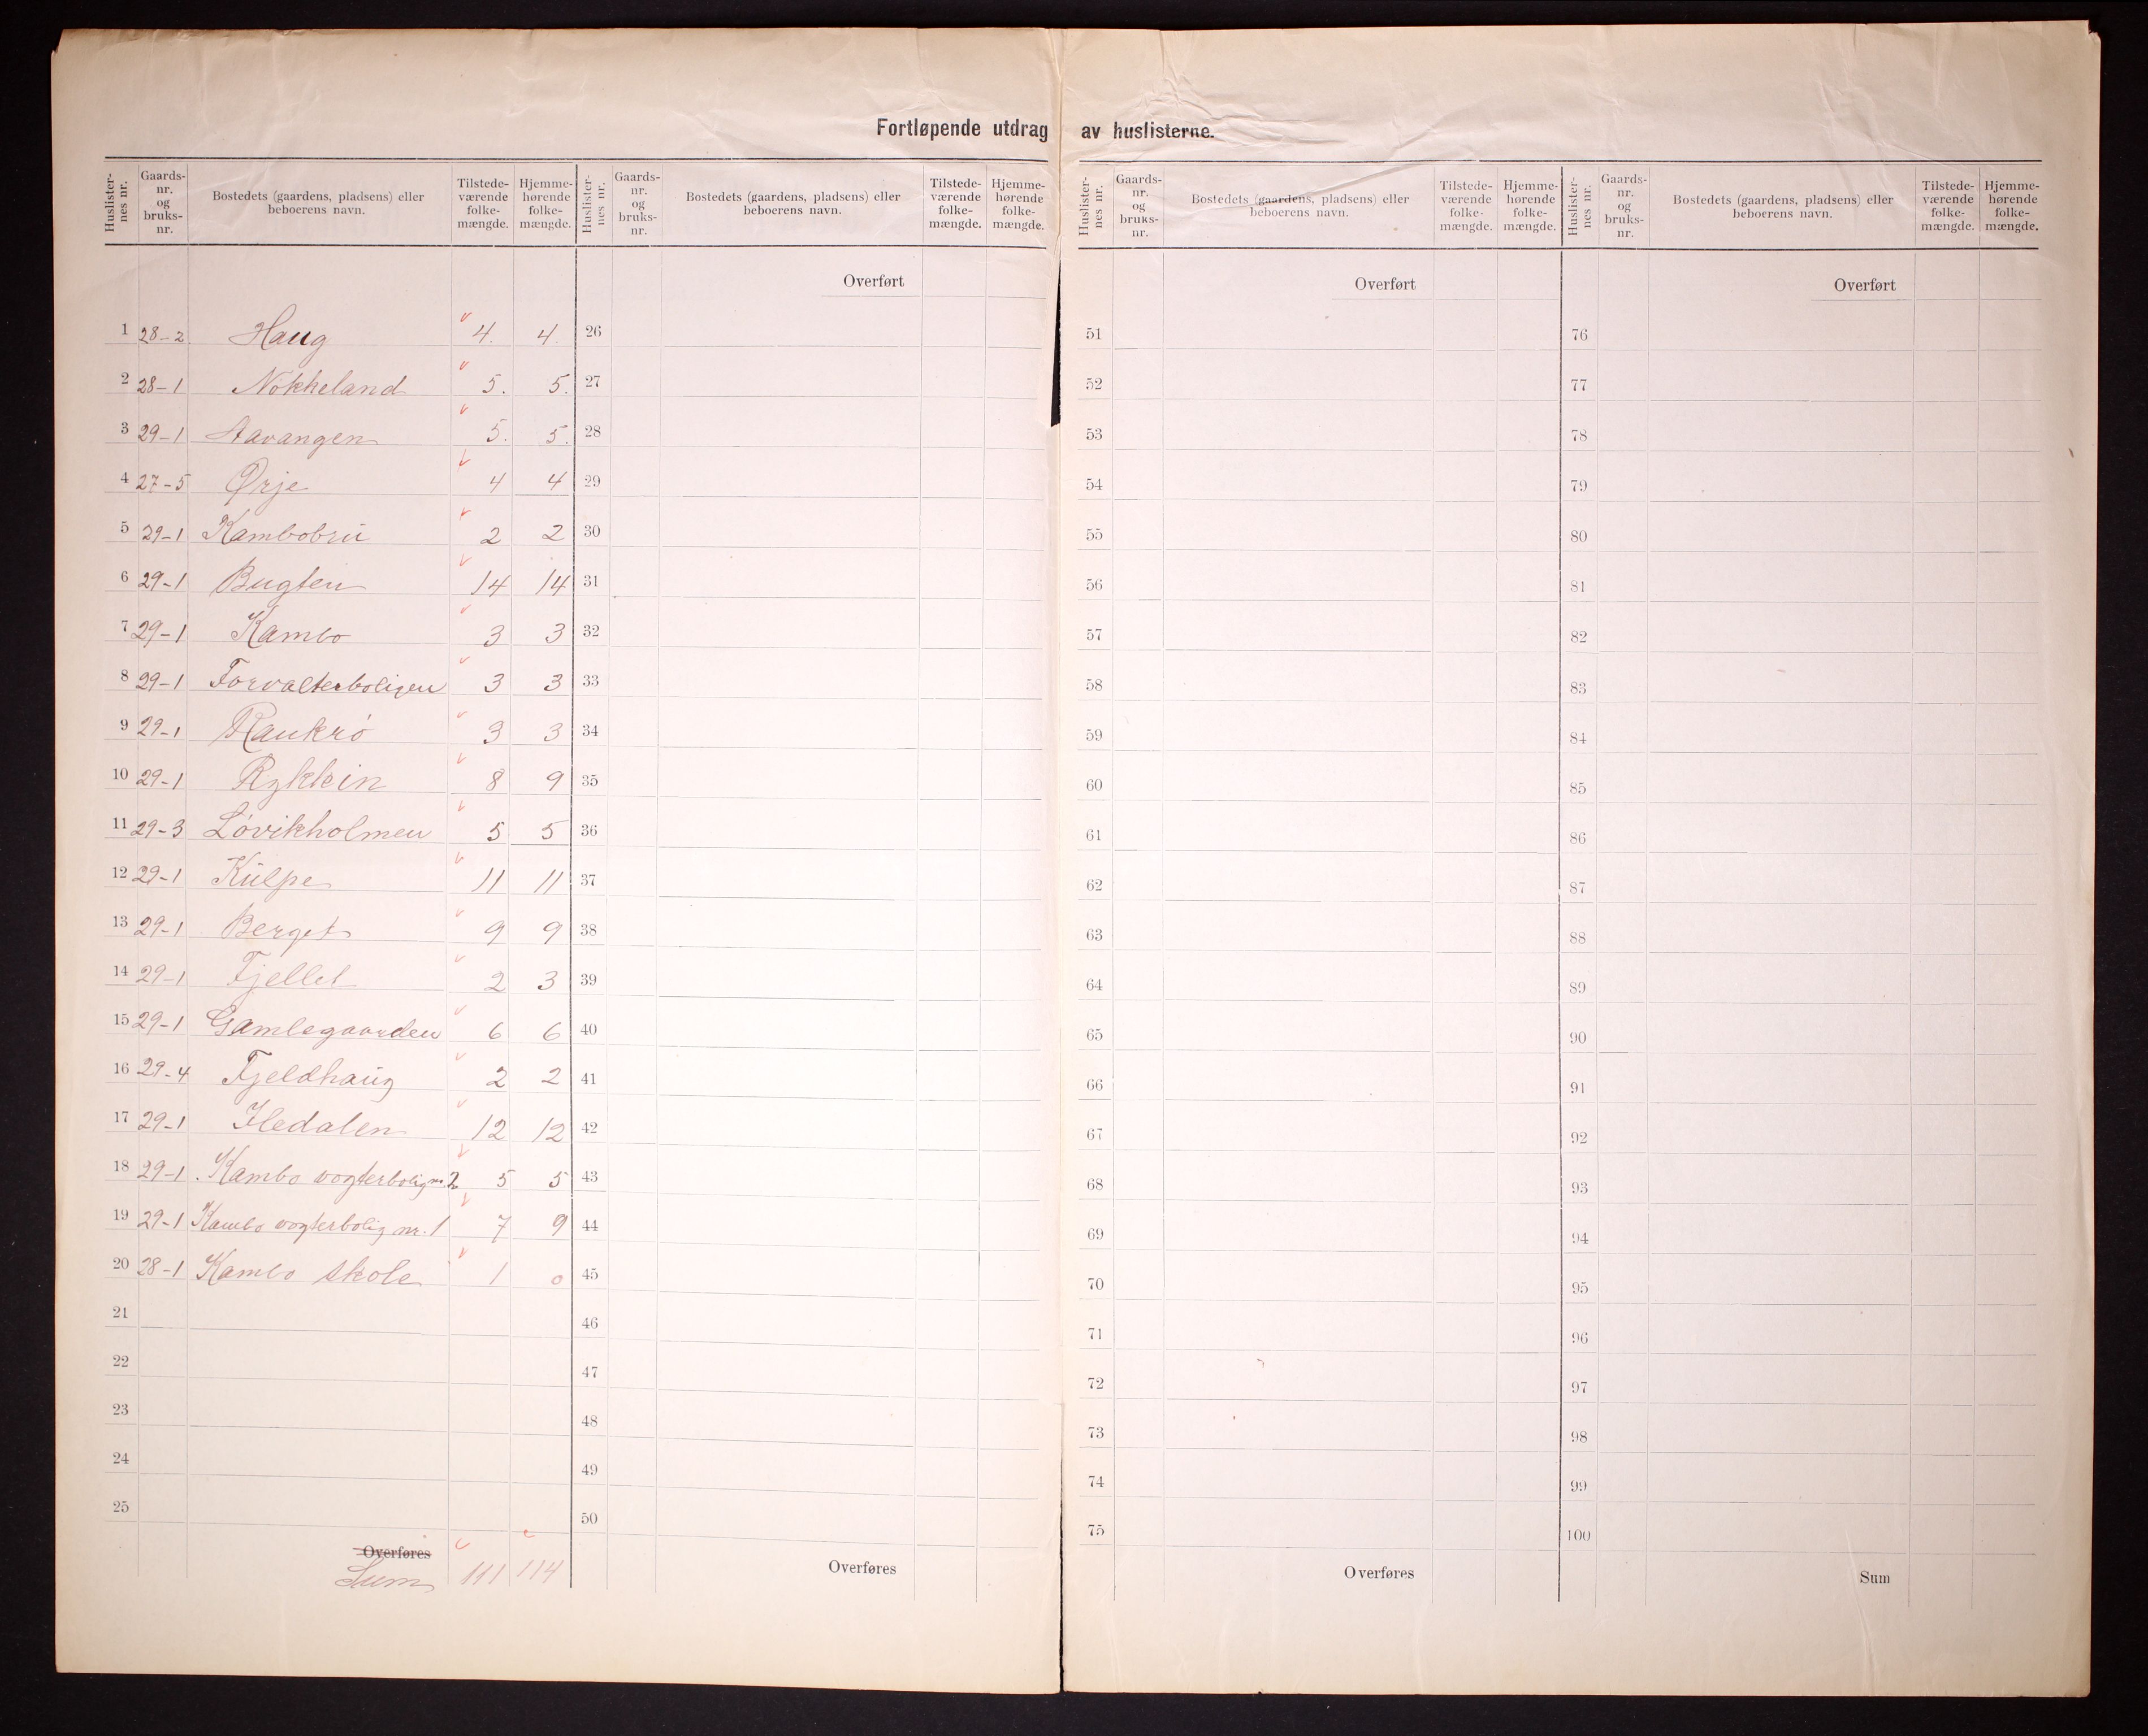 Fortløpende utdrag av huslisterne.
Huslister-nes nr. Gaards-nr. og bruks-nr. Bostedets (gaardens, pladsens) eller beboerens navn. Tilstede-værende folke-mængde. Hjemme-hørende folke-mængde.
1 28-2 Haug 4. 4
2 28-1 Nökkeland 5. 5.
3 29-1 Aavangen 5. 5.
4 27-5 Ørje 4 4
5 29-1 Kambobru 2 2
6 29-1 Bugten 14 14
7 29-1 Kambo 3 3
8 29-1 Forvalterboligen 3 3
9 29-1 Raukrö 3 3
10 29-1 8 9
11 29-3 Lövikholmen 5 5
12 29-1 Kulpe 11 11
13 29-1 Berget 9 9
14 29-1 Fjellet 2 3
15 29-1 Gamlegaarden 6 6
16 29-4 Fjeldhaug 2 2
17 29-1 Hedalen 12 12
18 29-1 Kambo vogterbolig nr. 2 5 5
19 29-1 Kambo vogterbolig nr. 1 7 9
20 28-1 Kambo skole 1 0
21
22
23
24
25
Overføres
Sum 111 114
Huslister-nes nr. Gaards-nr. og bruks-nr. Bostedets (gaardens, pladsens) eller beboerens navn. Tilstede-værende folke-mængde. Hjemme-hørende folke-mængde.
Overført
26
27
28
29
30
31
32
33
34
35
36
37
38
39
40
41
42
43
44
45
46
47
48
49
50
Overføres
Huslister-nes nr. Gaards-nr. og bruks-nr. Bostedets (gaardens, pladsens) eller beboerens navn. Tilstede-værende folke-mængde. Hjemme-hørende folke-mængde.
Overført
51
52
53
54
55
56
57
58
59
60
61
62
63
64
65
66
67
68
69
70
71
72
73
74
75
Overføres
Huslister-nes nr. Gaards-nr. og bruks-nr. Bostedets (gaardens, pladsens) eller beboerens navn. Tilstede-værende folke-mængde. Hjemme-hørende folke-mængde.
Overført
76
77
78
79
80
81
82
83
84
85
86
87
88
89
90
91
92
93
94
95
96
97
98
99
100
Sum